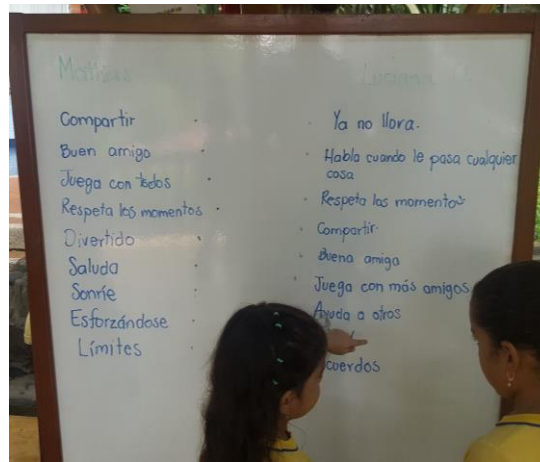 Matías
Compartir
Buen amigo
Juega con todos
Respeta los momentos
Divertido
Saluda
Sonríe
Esforzándose
Límites
Luciana
Ya no llora.
Habla cuando le pasa cualquier
cosa
Respeta los momentos
Compartir.
Buena amiga
Juega con más amigos
Ayuda a otros
cuerdos